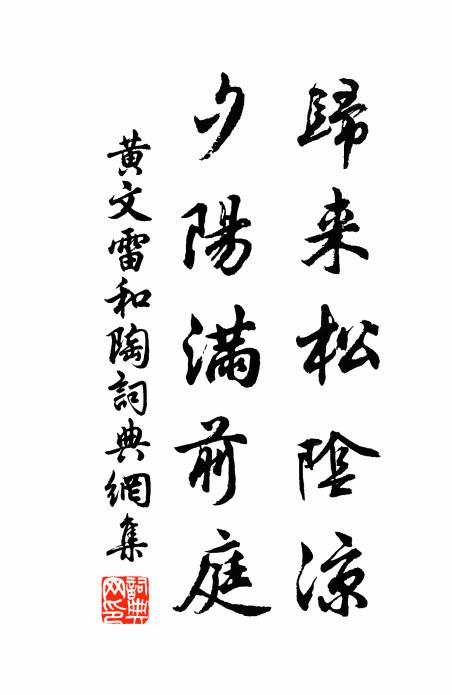 歸来松陰涼
夕陽滿前庭
黃文雷和陶詞典網集
詞典網印